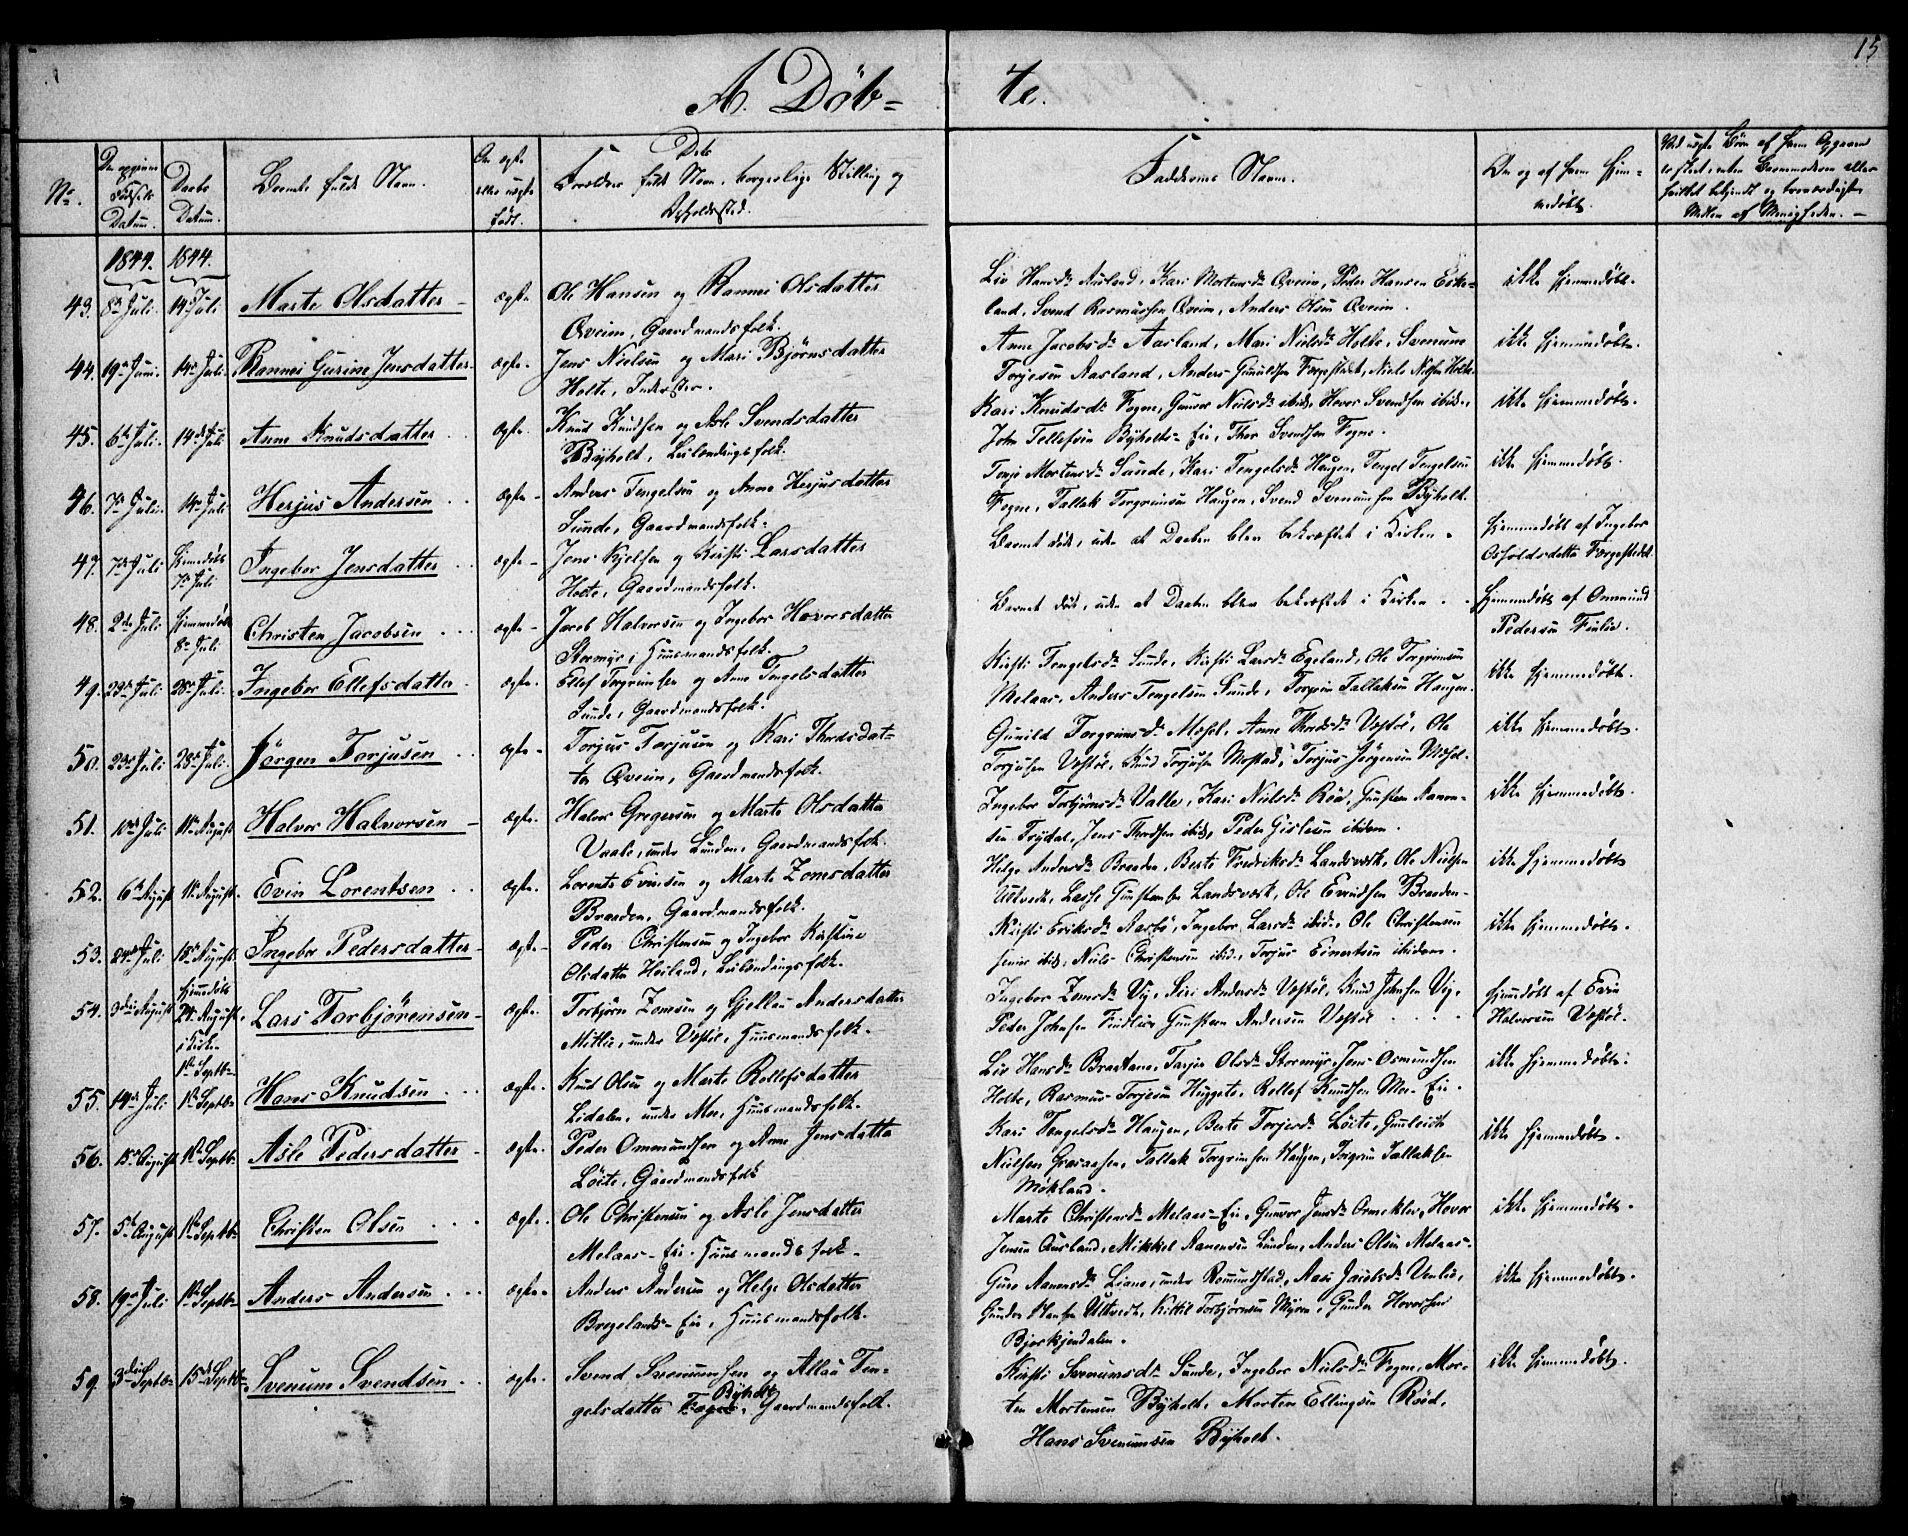 15
A. Døb-
te.
No.
Datum.
Daabs
Datum.
Barnets fulde Navn.
Om ægte
eller uægte
født.
Forældres fulde Navn, borgerlige Stilling og
Opholdssted.
Faddernes Navne.
Om og af hvem hjem-
medøbt.
1844. 1844.
43. 8de Juli. 14de Juli Marte Olsdatter - ægte. Ole Hansen og Rannei Olsdatter
Qveim, Gaardmandsfolk.
Liv Hansd: Aasland, Kari Mortensd: Qveim, Peder Hansen Eske-
land, Svend Rasmussen Qveim, Anders Olsen Qveim.
ikke hjemmedøbt.
44. 19de Juni. 14de Juli Rannei Gurine Jensdatter ægte. Jens Nielsen og Mari Bjørnsdatter
Holte, Inderster.
Anne Jacobsd: Aasland, Mari Nielsd: Holte, Svenum
Torjesen Aasland, Anders Gunuldsen Førgestedt, Niels Nielsen Holte.
ikke hjemmedøbt.
45. 6te Juli. 14de Juli Anne Knudsdatter . ægte. Knud Knudsen og Asle Svendsdatter
Byholt, Leilændingsfolk.
Kari Knudsd: Fogne, Gunvor Nielsd: ibid., Hover Svendsen ibid.,
John Tellefsen Byholts-Eie, Thor Svendsen Fogne.
ikke hjemmedøbt.
46. 7de Juli. 14de Juli Herjus Andersen . . ægte - Anders Tengelsen og Anne Herjusdatter
Sunde, Gaardmandsfolk.
Tonje Mortensd: Sunde, Kari Tengelsd: Haugen, Tengel Tengelsen
Fogne, Tallak Torgrimsen Haugen, Svend Svenumsen Byholt.
ikke hjemmedøbt.
47. 7de Juli Hjemmedøbt
7de Juli Ingebor Jensdatter . ægte - Jens Kjelsen og Kirsti Larsdatter
Holte, Gaardmandsfolk.
Barnet døde, uden at Daaben blev bekræftet i Kirken.
hjemmedøbt af Ingebor
Osholdsdatter Førgestedt
48. 2den Juli Hjemmedøbt
8de Juli Christen Jacobsen . . . ægte - Jacob Halvorsen og Ingebor Hoversdatter
Stormyr, Huusmandsfolk.
Barnet døde, uden at Daaben blev bekræftet i Kirken.
hjemmedøbt af Ommund
Pedersen Finlie.
49. 28de Juli. Ingebor Ellefsdatter . ægte. Ellef Torgrimsen og Anne Tengelsdatter
Sunde, Gaardmandsfolk.
Kirsti Tengelsd: Sunde, Kirsti Larsd: Egeland, Ole Torgrimsen
Melaas, Anders Tengelsen Sunde, Tallaksen Haugen.
ikke hjemmedøbt.
50. 23de Juli 28de Juli. Jørgen Torjusen . . ægte - Torjus Torjusen og Kari Thordsdat-
ter Qveim, Gaardmandsfolk.
Gunild Torgrimsd: Moshl, Anne Thordsd: Vostøl, Ole
Torjusen Vostøl, Knud Torjusen Mostad, Torjus Jørgensen Moshl.
ikke hjemmedøbt.
51. 10de Juli 11te August Halvor Halvorsen - ægte. Halvor Gregersen og Marte Olsdatter
Vaale, under Lunden, Gaardmandsfolk.
Ingebor Torbjørnsd: Valle, Kari Nielsd: Røa, Gunsten Aanon-
sen Frydal, Jens Thordsen ibid, Peder Gislesen ibidem.
ikke hjemmedøbt.
52. 6te August 11te August. Evin Lorentsen . . ægte. Lorents Evinsen og Marte Zomsdatter
Braaden, Gaardmandsfolk.
Helge Andersd: Braaden, Berte Fredriksd: Landsværk, Ole Nielsen
Ulltvedt, Lasse Gunstensen Landsværk, Ole Evindsen Braaden.
ikke hjemmedøbt
53. 24de Juli 18de August Ingebor Pedersdatter - ægte - Peder Christensen og Ingebor Kirstine
Olsdatter Heiland, Leilændingsfolk.
Kirsti Eriksd: Aasbø, Ingebor Larsd: ibid. Ole Christensen
senior ibid, Niels Christensen ibid, Torjus Einertsen ibidem.
ikke hjemmedøbt.
54. 3die August Hjemmedøbt
24. August.
i Kirken
1ste Septbr Lars Torbjørensen - ægte. Torbjørn Zomsen og Gjellau Andersdatter
Mitlie, under Vostøl, Huusmandsfolk.
Ingebor Zomsd: Vig, Siri Andersd: Vostøl, Knud Johnsen Vig,
Peder Johnsen Findlie, Gunsten Andersen Vostøl . . . .
hjemmedøbt af Evin
Halvorsen Vostøl.
55. 14de Juli 1ste Septbr Hans Knudsen . . . ægte. Knud Olsen og Marte Rollefsdatter
Lidalen, under Moe, Huusmandsfolk.
Liv Hansd: Braatane, Tarjer Olsd: Stormyr, Jens Osmundsen
Holte, Rasmus Torjesen Huggete, Rollef Knudsen Moe-Eie.
ikke hjemmedøbt.
56. 15de August 1ste Septbr. Asle Pedersdatter - ægte. Peder Ommundsen og Anne Jensdatter
Løite, Gaardmandsfolk
Kari Tengelsd: Haugen, Berte Torjesd: Løite, Gunleich
Nielsen Graaasen, Tallak Torgrimsen Haugen, Torgrim Tallaksen
Mokland.
ikke hjemmedøbt.
57. 5te August 1ste Septbr Christen Olsen . . . ægte. Ole Christensen og Asle Jensdatter
Melaas-Eie. Huusmandsfolk.
Marte Christensd: Melaas-Eie, Gunvor Jensd: Ormekler, Hover
Jensen Aasland, Mikkel Aanensen Lunden, Anders Olsen Melaas.
ikke hjemmedøbt.
58. 19de Juli 1ste Septbr Anders Andersen . . . ægte. Anders Andersen og Helge Olsdatter
Bregelands-Eie, Huusmandsfolk.
Guro Aanensd: Liane, under Romundstad, Aase Jacobsd: Venlie,
Gunder Hansen Ulltvedt, Kittil Torbjørnsen Myren, Gunder Hoversen
Bjørkjendalen.
ikke hjemmedøbt.
59. 3die Septbr 15de Septbr. Svenum Svendsen . . ægte. Svend Svenumsen og Allau Ten-
gelsdatter Byholt, Gaardmandsfolk.
Kirsti Svenumsd: Sunde, Ingebor Nielsd: Fogne, Mor-
ten Mortensen Byholt, Morten Ellingsen Røed,
Hans Svenumsen Byholt.
ikke hjemmedøbt.